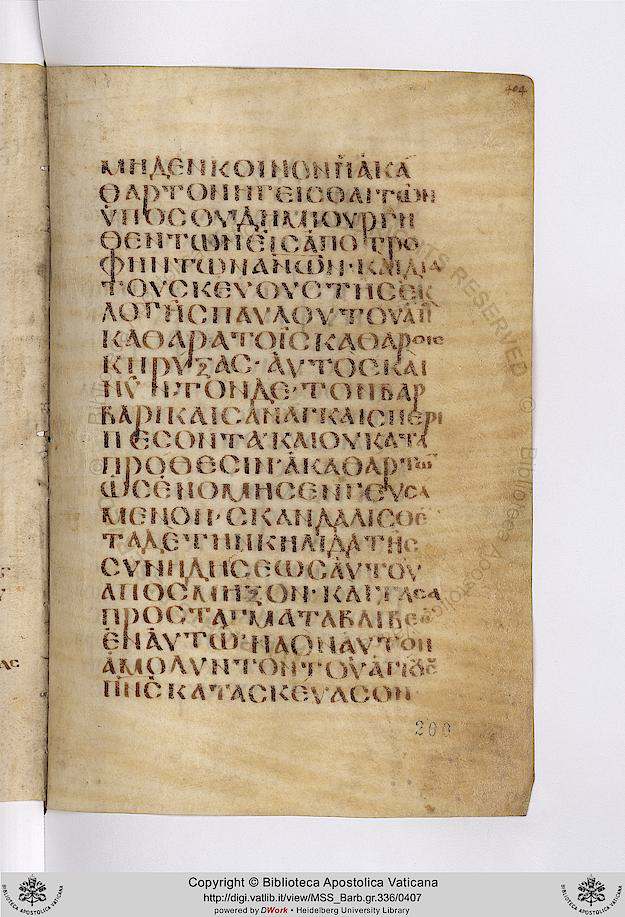 404
ΜΗΔΕΝ ΚΟΙΝΟΝ Ἢ ἈΚΑ
ΘΑΡΤΟΝ ἩΓΕΙΣΘΑΙ ΤῶΝ
ὙΠΟ ΣΟΥ ΔΗΜΙΟΥΡΓΗ
ΘΕΝΤΩΝ ΕἸΣ ἈΠΟΤΡΟ
ΦΗΝ ΤΩΝ ἈΝΩΝ· ΚΑΙ ΔΙΑ
ΤΟΥ ΣΚΕΥΟΥΣ ΤΗΣ ἘΚ
ΛΟΓΗΣ ΠΑΥΛΟΥ ΤΟΥ
ΚΑΘΑΡΑ ΤΟΙΣ ΚΑΘΑΡΟΙΣ
ΚΗΡΥΞΑΣ· ΑΥΤΟΣ ΚΑΙ
ΝΥΝ ΤΟΝΔΕ ΤΟΝ ΒΑΡ
ΒΑΡΙΚΑΙΣ ἈΝΑΓΚΑΙΣ ΠΕΡΙ
ΠΕΣΟΝΤΑ ΚΑΙ ΟΥ ΚΑΤΑ
ΠΡΟΘΕΣΙΝ· ἈΚΑΘΑΡΤῶ
ΩΣ ἘΝΟΜΗΣΕΝ ΓΕΥΣΑ
ΜΕΝΟΝ· ΣΚΑΝΔΑΛΙΣΘΕ
ΤΑ ΔΕ ΤΗΝ ΚΗΛΙΔΑ ΤΗΣ
ΣΥΝΗΔΗΣΕΩΣ ΑΥΤΟΥ
ἈΠΟΣΜΗΞΟΝ· ΚΑΙ ΤΑ ΣΑ
ΠΡΟΣΤΑΓΜΑΤΑ
ἘΝ ΑΥΤΩ· ΝΑΟΝ ΑΥΤΟΝ
ἈΜΟΛΥΝΤΟΝ ΤΟΥ ἉΓΙΟΥ Σ
ΠΝΣ ΚΑΤΑΣΚΕΥΑΣΟΝ
200
Copyright © Biblioteca Apostolica Vaticana
http://digi.vatlib.it/view/MSS_Barb.gr.336/0407
powered by DWork • Heidelberg University Library